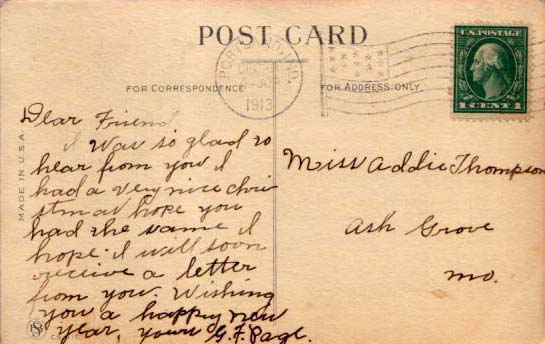 POST CARD
U.S. POSTAGE
1 CENT 1
PORTLAND, IND.
1913
FOR CORRESPONDENCE
FOR ADDRESS ONLY
MADE IN U.S.A.
Dear Friend
I Was so glad to
hear from you I
had a very nice chri
stmas hope you
had the same I
hope I will soon
receive a letter
from you. Wishing
you a happy new
year, yours G.F. Page.
Miss Addie Thompson
Ash Grove
Mo.